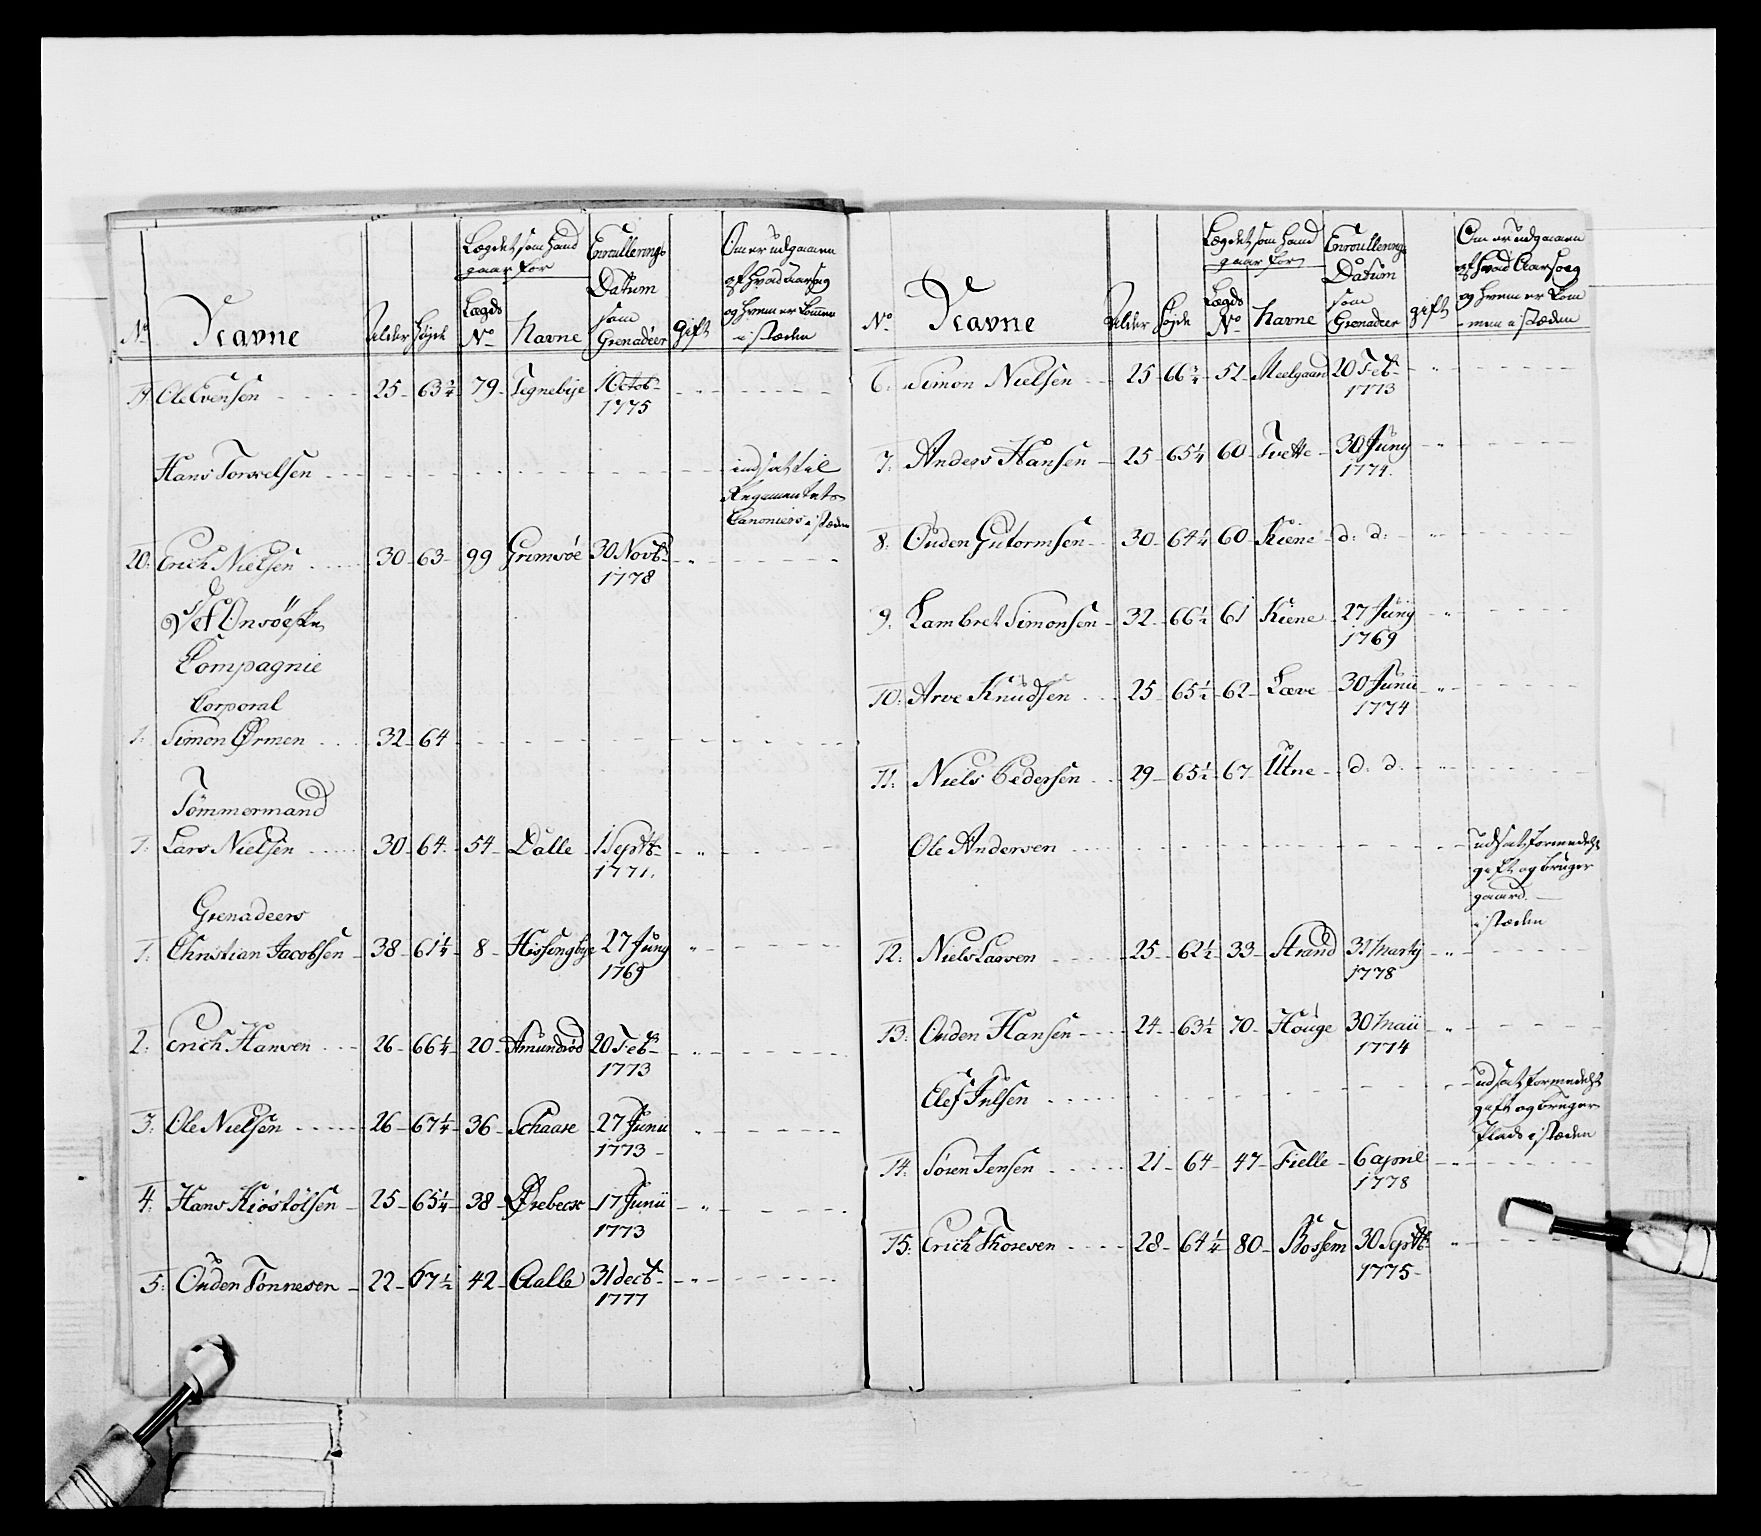 Lægdet som hand
gaar for
Enroullerings
Datum
som
Grenadeer
Om er udgaaen
af hvad Aarsag
og hvem er kommen
i stæden
No Navne Alder Højde Lægds No Navne gift
19 Ole Evensen 25 63 3/4 79 Tegnebye 1 Octob
1775
Hans Torxelsen indsat til
Regementets
Canoniers i stæden
20: Erich Nielsen 30 63 99 Grimsöe 30 Novb
1778
Det Onsöeske
Compagnie
Corporal
1: Simon Ørmen 32 64
Tömmermand
1: Lars Nielsen 30 64 54 Dalle 1 Septb
1771.
Grenadeers
1: Christian Jacobsen 38 61 1/4 8 Hissingbye 27 Juny
1769
2: Erich Hansen 26 66 1/4 20 Amundrød 20 Feb
1773
3: Ole Nielsen 26 67 1/4 36 Schaare 27 Junii
1773
4: Hans Kiöstölsen 25 65 1/4 38 Ørebeck 17 Junii
1773
5: Ouden Tønnesen 22 67 1/2 42 Aalle 31 decb
1777
Lægdet som hand
gaar for
Enroullerings
Datum
som
Grenadeer
Om er udgaaen
af hvad Aarsag
og hvem er kom
men i stæden
No Navne Alder Højde Lægds No Navne gift
6: Simon Nielsen 25 66 3/4 51 Meelgaard 20 Feb
1773
7: Anders Hansen 25 65 1/4 60 Tvette 30 Juny
1774.
8: Ouden Gutormsen 30 64 1/4 60 Kiene d: d:
9: Lambret Simonsen 32 66 1/2 61 Kiene 27 Juny
1769
10: Arve Knudsen 25 65 1/2 62 Læve 30 Junii
1774
11: Niels Pedersen 29 65 1/2 67 Utne d: d:
Ole Andersen udsat formedelst
gift og bruger
gaard.
i stæden
12: Niels Larsen 25 62 1/2 33 Strand 31 Marty
1778
13: Ouden Hansen 24 63 1/2 70 Houge 30 Maii
1774
Elef Julsen udsat formedelst
gift og bruger
Plads i stæden
14: Sören Jensen 21 64 47 Fielle 6 april
1778
15: Erich Thoresen 28 64 1/4 80 Bossem 30 Septb
1775